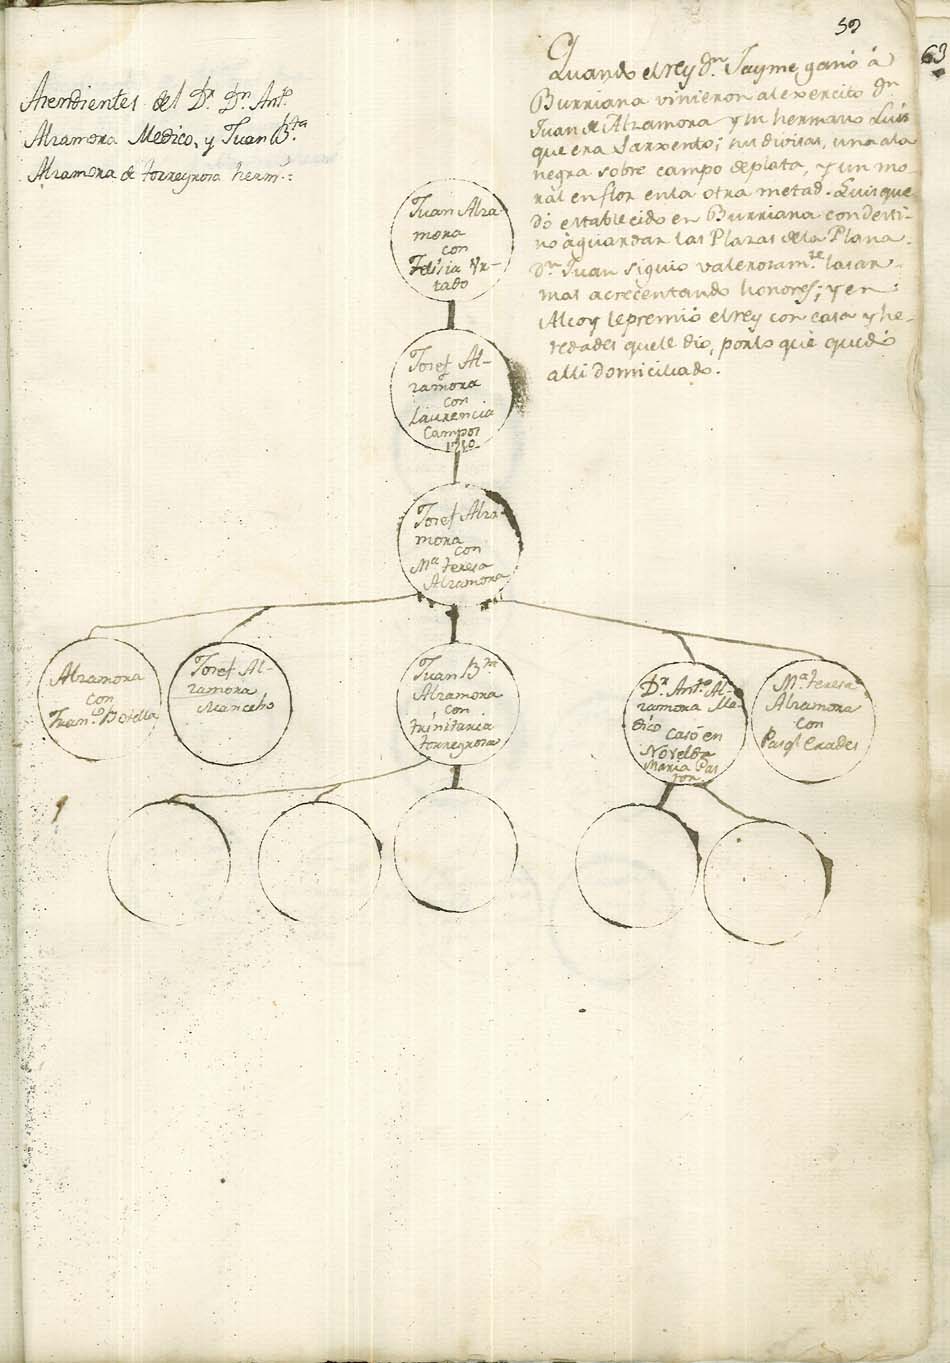 59
63
Asendientes del Dr. Dn. Antº
Alzamora Medico, y Juan Bta
Alzamora de torregrosa herms:
Quando el rey dn. Jayme ganó á
Burriana vinieron al exercito dn
Juan de Alzamora y su hermano Luis
que era Sarxento; su divisas, una ala
negra sobre campo de plata, y un mo-
ral en flor en la otra metad. Luis que
dó establecido en Burriana con desti-
no à guardar las Plazas de la Plana.
Dn Juan siguio valerosamte las ar-
mas acrecentando honores; y en
Alcoy le premió el rey con casa y he-
redades que le dio, por lo que quedó
alli domiciliado.
Juan Alza
mora
con
Felisia Ur-
tado
Josef Al-
zamora
con
Laurencia
Campos
1710
Josef Alza-
mora
con
Mª teresa
Alzamora
Alzamora
con
Franco Botella
Josef Al-
zamora
Mancebo
Juan Bta
Alzamora
con
trinitaria
torregrosa
Dr Anto Al-
zamora Me-
dico casó en
Novelda
Maria Pas
tor
Mª teresa
Alzamora
con
Pasql Erades